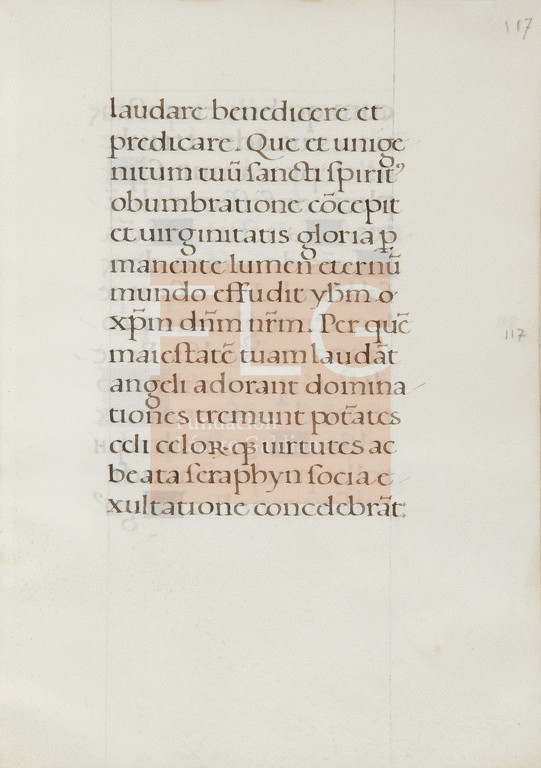 117
laudare benedicere et
predicare. Que et unige
nitum tuū ſancti ſpiritꝰ
obumbratione cōcepit
et uirginitatis gloria ꝑ
manente lumen eternū
mundo effudit yhm̄ o
xp̄m dn̄m nr̄m. Per quē
maieſtatē tuam laudāt
angeli adorant domina
tiones tremunt potātes
celi celoꝝqꝫ uirtutes ac
beata ſeraphyn ſocia e
xultatione concelebrāt:
117
FLG
Fundación
Lázaro Galdiano